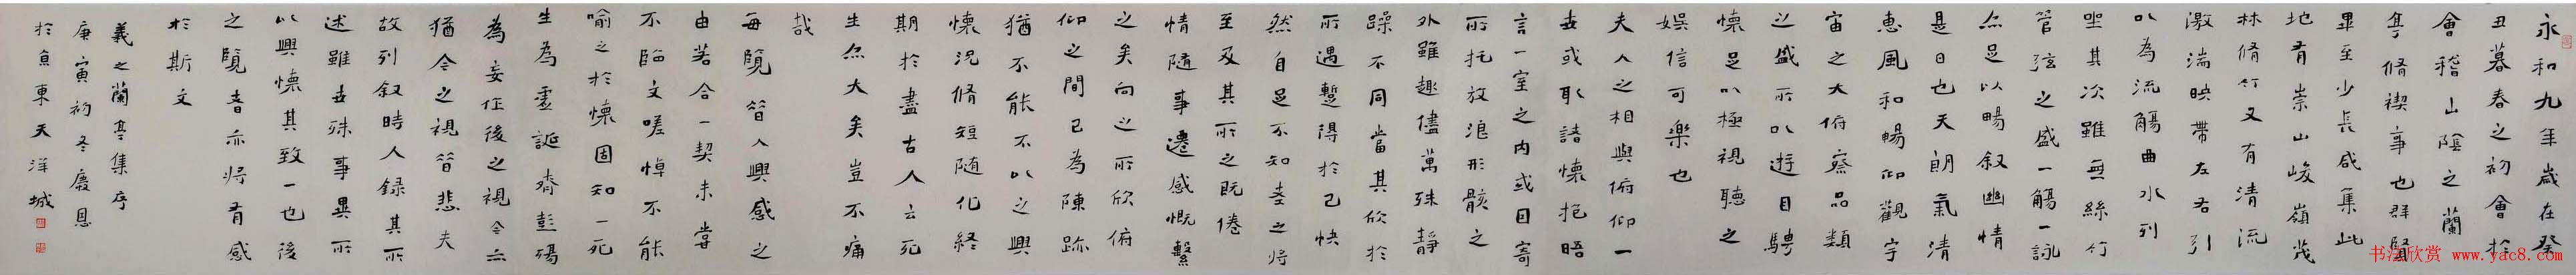 永和九年歲在癸
丑暮春之初會於
會稽山陰之蘭
亭脩禊事也群賢
畢至少長咸集此
地有崇山峻嶺茂
林脩竹又有清流
激湍映帶左右引
以為流觴曲水列
坐其次雖無絲竹
管弦之盛一觴一詠
亦足以暢叙幽情
是日也天朗氣清
惠風和暢仰觀宇
宙之大俯察品類
之盛所以遊目騁
懷足以極視聽之
娛信可樂也
夫人之相與俯仰一
世或取諸懷抱晤
言一室之内或因寄
所托放浪形骸之
外雖趣儘萬殊靜
躁不同當其欣於
所遇蹔得於己快
然自足不知老之將
至及其所之既倦
情隨事遷感慨繫
之矣向之所欣俯
仰之間已為陳跡
猶不能不以之興
懷況脩短隨化終
期於盡古人云死
生亦大矣豈不痛
哉
每覽昔人興感之
由若合一契未嘗
不臨文嗟悼不能
喻之於懷固知一死
生為虛誕齊彭殤
為妄作後之視今亦
猶今之視昔悲夫
故列叙時人録其所
述雖世殊事異所
以興懷其致一也後
之覽者亦將有感
於斯文
羲之蘭亭集序
庚寅初冬慶恩
於京東天洋城
书法欣赏 www.yac8.com